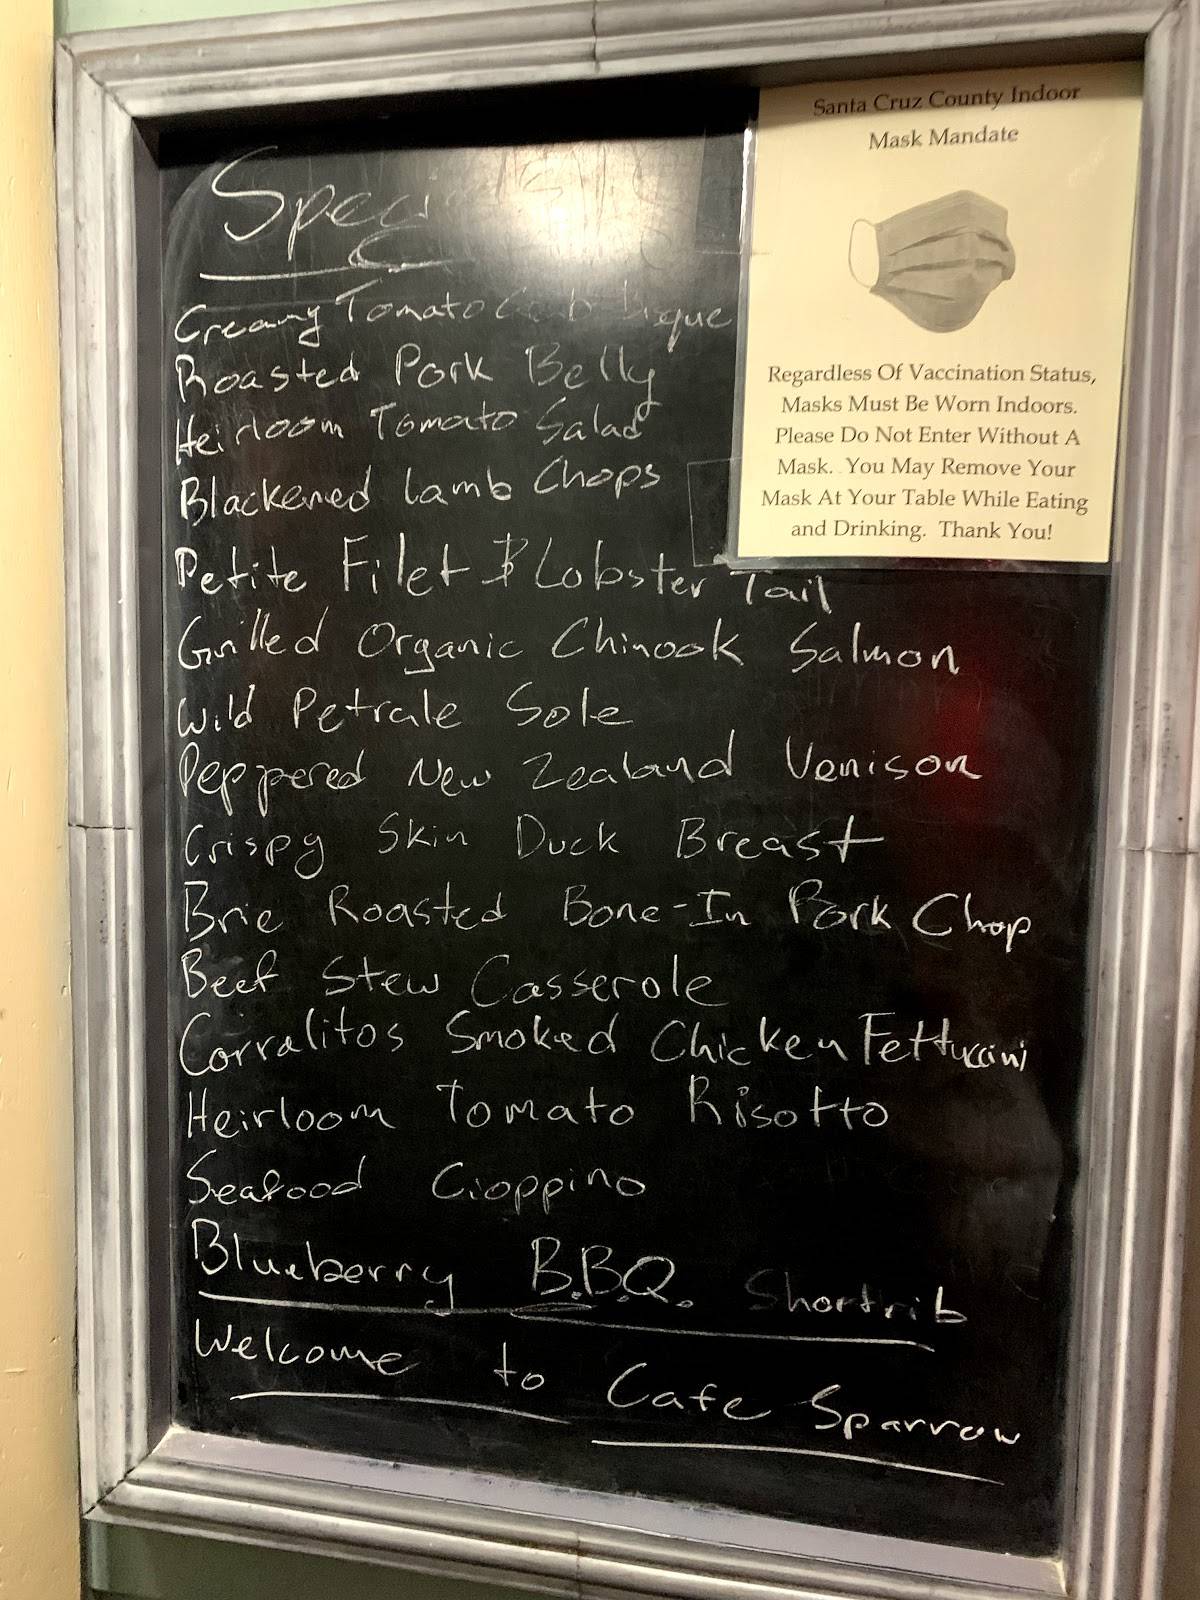 Specials
Creamy Tomato Crab Bisque
Roasted Pork Belly
Heirloom Tomato Salad
Blackened Lamb Chops
Petite Filet & Lobster Tail
Grilled Organic Chinook Salmon
Wild Petrale Sole
Peppered New Zealand Venison
Crispy Skin Duck Breast
Brie Roasted Bone-In Pork Chop
Beef Stew Casserole
Corralitos Smoked Chicken Fettuccini
Heirloom Tomato Risotto
Seafood Cioppino
Blueberry B.B.Q. Shortrib
Welcome to Cafe Sparrow
Santa Cruz County Indoor
Mask Mandate
Regardless Of Vaccination Status,
Masks Must Be Worn Indoors.
Please Do Not Enter Without A
Mask. You May Remove Your
Mask At Your Table While Eating
and Drinking. Thank You!